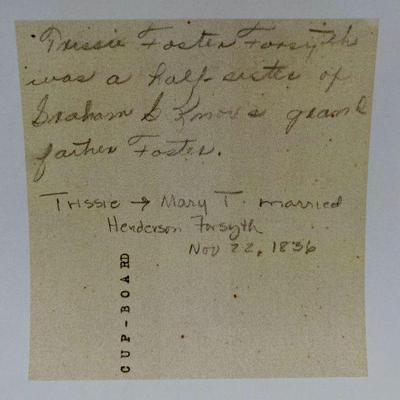 Trissie Foster Forsyth
was a half sister of
Graham G Knox's grand
father Foster.
Trissie → Mary T. married
Henderson Forsyth
Nov 22, 1836
CUP-BOARD